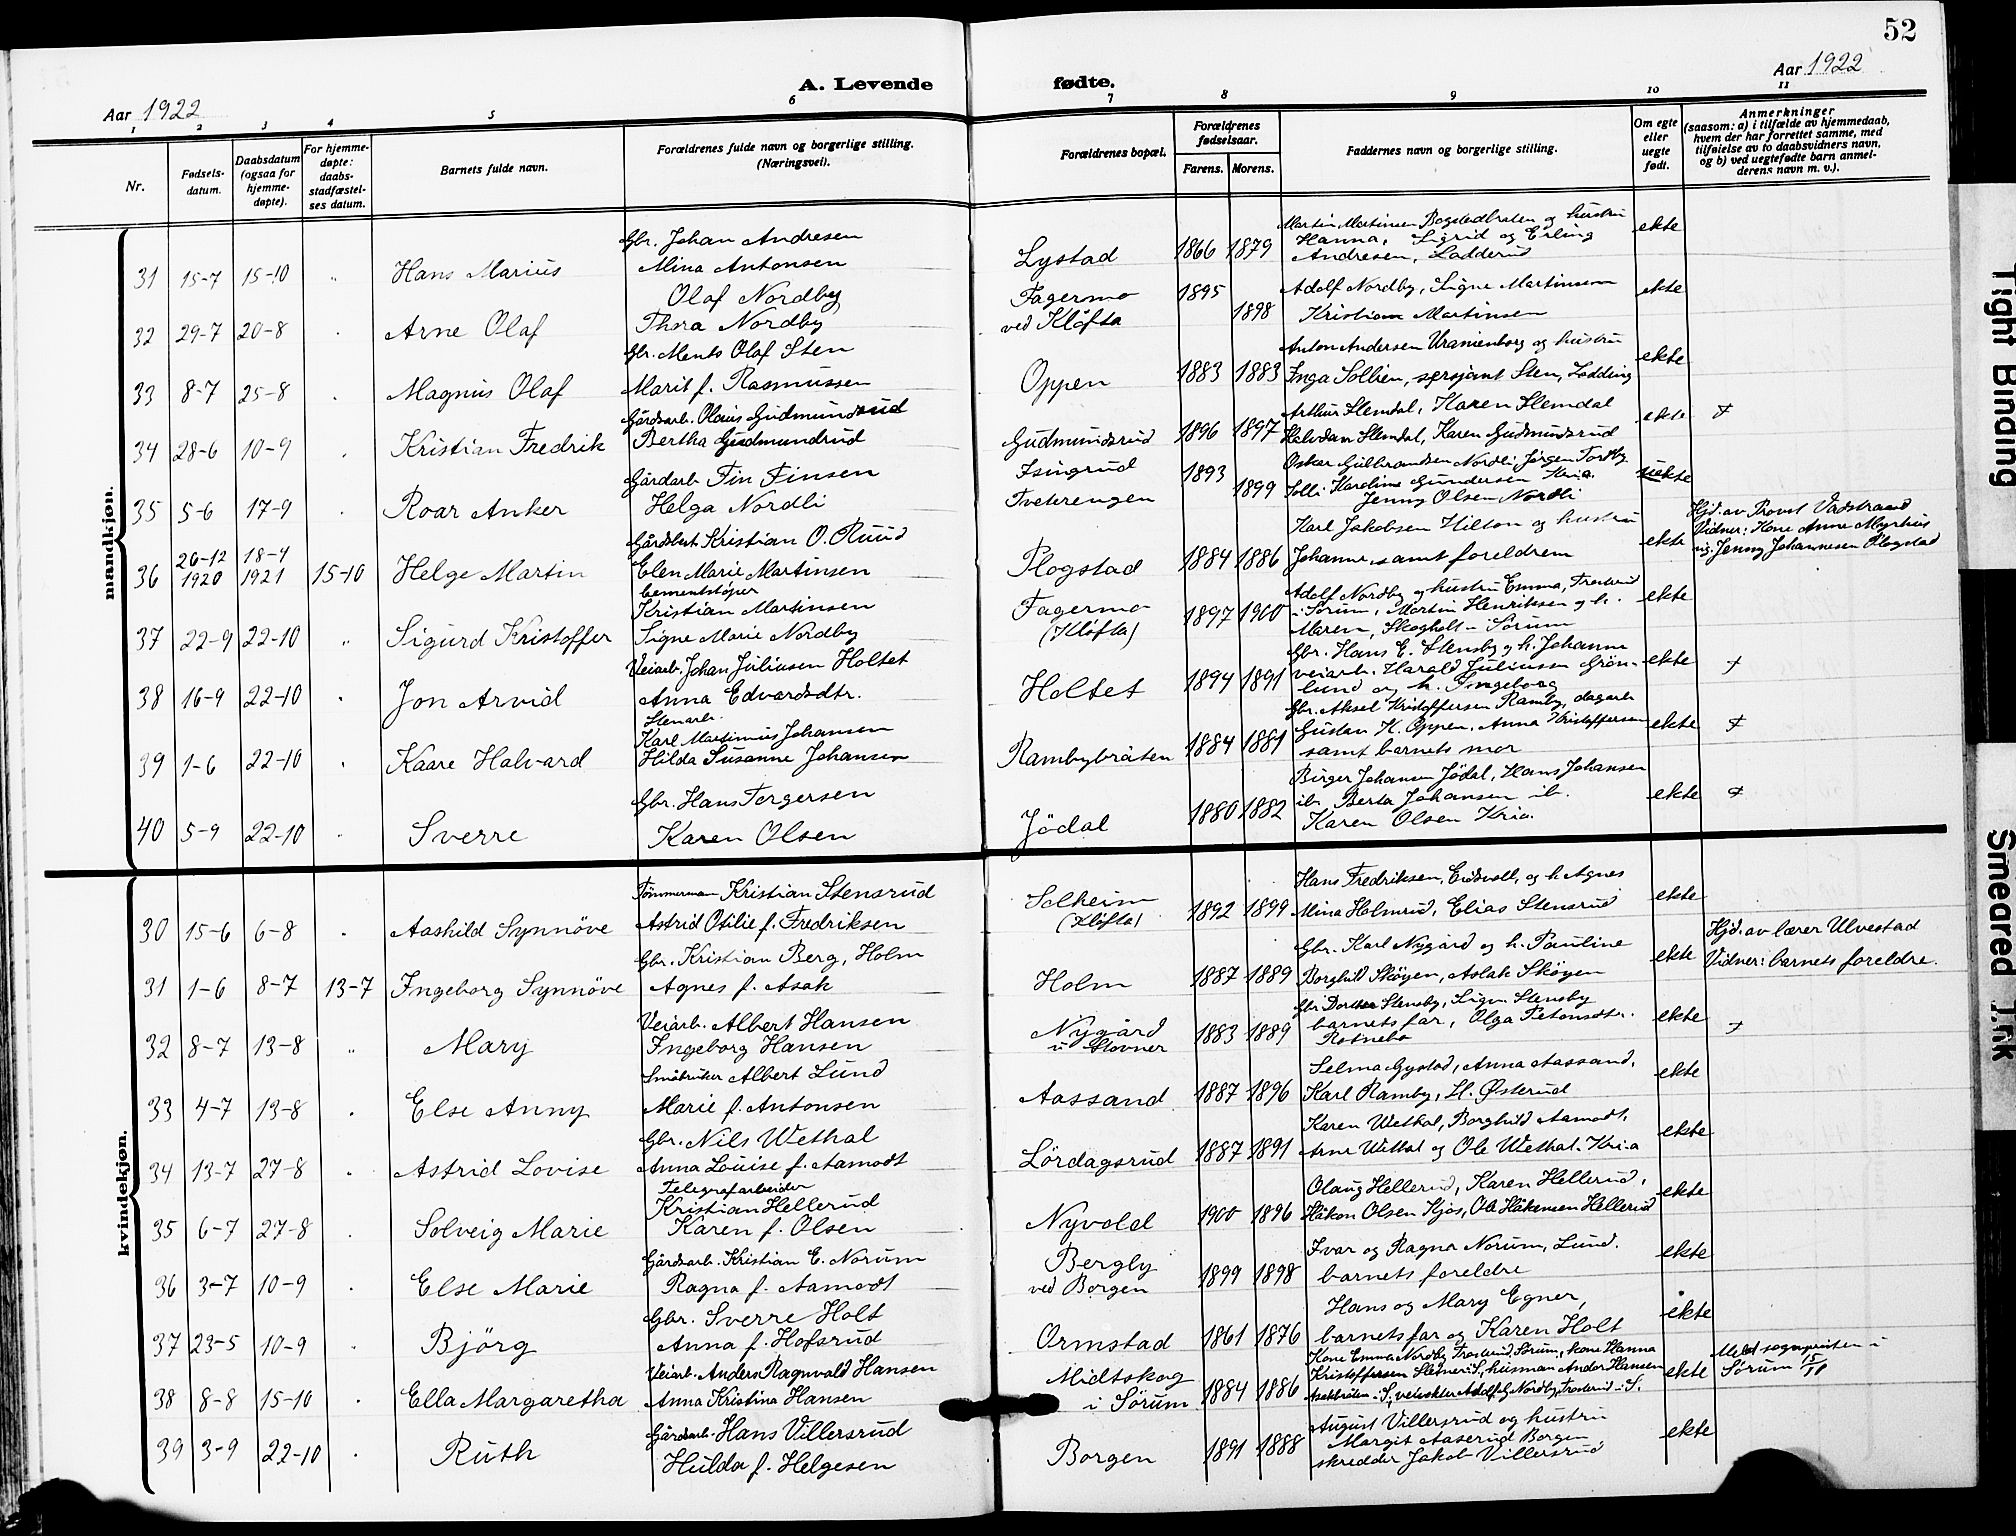 52
A. Levende fødte.
Aar 1922
Aar 1922
1
2
3
4
5
6
7
8
9
10
11
Nr.
Fødsels-datum.
Daabsdatum (ogsaa for hjemme-døpte).
For hjemme-døpte: daabs-stadfæstel-ses datum.
Barnets fulde navn.
Forældrenes fulde navn og borgerlige stilling. (Næringsvei).
Forældrenes bopæl.
Forældrenes fødselsaar.
Farens. Morens.
Faddernes navn og borgerlige stilling.
Om egte eller uegte født.
Anmerkninger
(saasom: a) i tilfælde av hjemmedaab,
hvem der har forrettet samme, med
tilføielse av to daabsvidners navn,
og b) ved uegtefødte barn anmel-
derens navn m. v.).
mandkjøn.
31 15-7 15-10 " Hans Marius Gbr. Johan Andresen Mina Antonsen Lystad 1866 1879 Martin Martinsen Bogstadbraten og hustru Hanna, Sigrid og Erling Andresen, Ladderud ekte
32 29-7 20-8 " Arne Olaf Olaf Nordby Thora Nordby Fagermo ved Kløfta 1895 1898 Adolf Nordby, Signe Martinsen Kristian Martinsen ekte
33 8-7 25-8 " Magnus Olaf Gbr. Ments Olaf Sten Marit f. Rasmussen Oppen 1883 1883 Anton Andersen Uranienborg og hustru Inga Sollien, sersjant Sten, Lodding ekte
34 28-6 10-9 " Kristian Fredrik Gårdsarb. Olaus Gudmundsrud Bertha Gudmundrud Gudmundsrud 1896 1897 Arthur Slemdal, Karen Slemdal Halvdan Slemdal, Karen Gudmundsrud ekte +
35 5-6 17-9 " Roar Anker Gårdarb. Fin Finsen Helga Nordli Isingrud Tveterengen 1893 1899 Oskar Gulbrandsen Nordli, Jørgen Tordby Solli. Karoline Gundersen Kria. Jenny Olsen Nordli uekte
36 26-12 1920 18-4 1921 15-10 Helge Martin Gårdsbest. Kristian O. Ruud Elen Marie Martinsen Plogstad 1884 1886 Karl Jakobsen Hilton og hustru Johanne, samt foreldrene ekte Hjd. av Provst Vadstrand Vidner: Kone Anne Myrhus og Jenny Johannesen Plogstad
37 22-9 22-10 " Sigurd Kristoffer Cementstøper Kristian Martinsen Signe Marie Nordby Fagermo (Kløfta) 1897 1900 Adolf Nordby og hustru Emma, Frosterud i Sørum, Martin Henriksen og h. Maren, Skogholt i Sørum ekte
38 16-9 22-10 " Jon Arvid Veiarb. Johan Juliusen Holtet Anna Edvardsdtr. Holtet 1894 1891 Gbr. Hans E. Stensby og h. Johanne veiarb. Harald Juliussen Grön-lund og h. Ingeborg ekte +
39 1-6 22-10 " Kaare Halvard Stenarb. Karl Martinius Johansen Hilda Susanne Johansen Rambybråten 1884 1881 Gbr. Aksel Kristoffersen Ramby, dagarb. Gustav K. Oppen, Anna Kristoffersen samt barnets mor ekte +
40 5-9 22-10 " Sverre Gbr. Hans Torgersen Karen Olsen Jödal 1880 1882 Birger Johansen Jödal, Hans Johansen ib. Berta Johansen ib. Karen Olsen Kria. ekte +
kvindekjøn.
30 15-6 6-8 " Aashild Synnöve Tömmerman Kristian Stensrud Astrid Otilie f. Fredriksen Solheim (Kløfta) 1892 1899 Hans Fredriksen, Eidsvoll, og h. Agnes Mina Holmrud, Elias Stensrud ekte
31 1-6 8-7 13-7 Ingeborg Synnöve Gbr. Kristian Berg, Holm Agnes f. Asak Holm 1887 1889 Gbr. Karl Nygård og h. Pauline Borghild Skøyen, Aslak Skøyen ekte Hjd. av lærer Ulvestad Vidner: barnets foreldre.
32 8-7 13-8 " Mary Veiarb. Albert Hansen Ingeborg Hansen Nygård u Stovner 1883 1889 Gbr. Dorthea Stensby, Signe Stensby barnets far, Olga Rotnebo ekte +
33 4-7 13-8 " Else Anny Småbruker Albert Lund Marie f. Antonsen Aassand 1887 1896 Selma Gystad, Anna Aassand, Karl Ramby, H. Østerud ekte
34 13-7 27-8 " Astrid Lovise Gbr. Nils Wethal Anna Louise f. Aamodt Lördagsrud 1887 1891 Karen Wethal, Borghild Aamodt, Arne Wethal og Ole Wethal. Kria ekte
35 6-7 27-8 " Solveig Marie Telegrafarbeider Kristian Hellerud Karen f. Olsen Nyvold 1900 1896 Olaug Hellerud, Karen Hellerud, Håkon Olsen Kjos, Ole Håkensen Hellerud ekte
36 3-7 10-9 " Else Marie Gårdsarb. Kristian E. Norum Ragna f. Aamodt Bergly ved Borgen 1899 1898 Ivar og Ragna Norum, Lund. barnets foreldre ekte
37 23-5 10-9 " Björg Gbr. Sverre Holt Anna f. Hofsrud Ormstad 1861 1876 Hans og Mary Egner, barnets far og Karen Holt ekte
38 8-8 15-10 " Ella Margaretha Veiarb. Anders Ragnvald Hansen Anna Kristina Hansen Midtskog i Sørum 1884 1886 Kone Emma Nordby Frosterud, Sørum, kone Hanna Kristoffersen i S., husman Anders Hansen Asakbråten i S, Adolf G Nordby, Frosterud i S. ekte Meldt sognepresten i Sørum 15/10
39 3-9 22-10 " Ruth Gårdsarb. Hans Villersrud Hulda f. Helgesen Borgen 1891 1888 August Villersrud og hustru Margit Aaserud Borgen skredder Jakob Villersrud ekte
Tight Binding
Smeared Ink